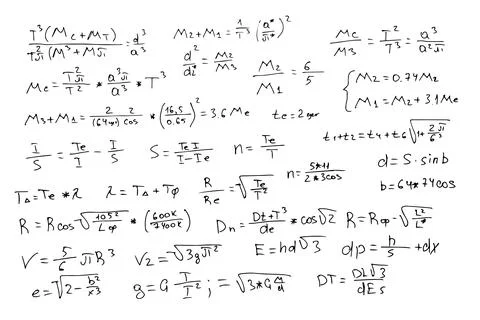 T³(Mc+MT) / T²JI(M³+MJI = d³/a³
M₂+M₁ = 1/T³ (a*/JI*)²
d²/dz* = M₂/M₃
Mc/M3 = T²/T³ = a³/a²JI
Mc = T²JI/T² * a³JI/a³ * T³
M₂/M₁ = 6/5
{ M₂ = 0.74M₂
M₁ = M₂ + 3.1Me
M₃+M₁ = 2 2 / cos * (16,5/0.65)² = 3.6Me
tc = 2
t₁+t₂ = t₄+t₆ √1+2JI/g³
I/S = Te/I - I/S
S = TeI/I-Ie
n = Te/T
n = 5*11/2*3cos
d = S · sinb
b = 64*74cos
T△ = Te * λ
λ = T△ + Tφ
R/Re = √Te/T²
R = Rcos √105²/Lφ * (600K/7400K)
Dn = Dt+T³/de * cos√2
R = Rφ - √L²/L*
V = 5/6 JIR³
V₂ = √3gJI²
E = hd√3
dp = h/s + dx
e = √2 - b²/x³
g = G T/I² ; = √3*G M/d
DT = DL√3/dEs